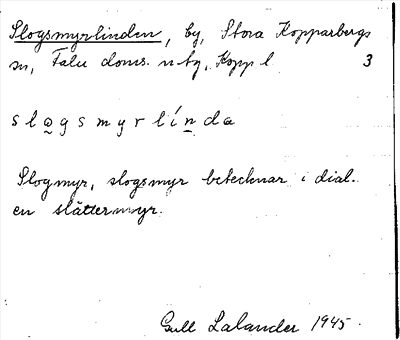 Slogsmyrlinden, by, Stora Kopparbergs
sn, Falu doms. n tg, Kopp l 3
slogsmyrlínda
Slogmyr, slogsmyr betecknar i dial.
en slåttermyr.
Gull Lalander 1945.